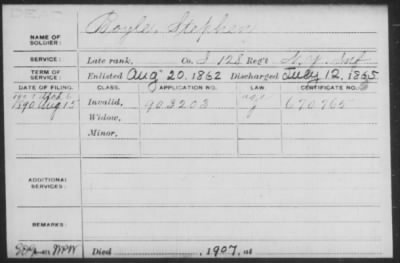 NAME OF SOLDIER: Boyle, Stephen
SERVICE: Late rank, Co. I 128 Reg't N.Y. Inf
TERM OF SERVICE: Enlisted Aug 20, 1862 Discharged July 12, 1865
DATE OF FILING. CLASS. APPLICATION NO. LAW. CERTIFICATE NO.
1890 Aug 15 Invalid, 903203 670765
Widow,
Minor,
ADDITIONAL SERVICES:
REMARKS:
Died , 1907, at